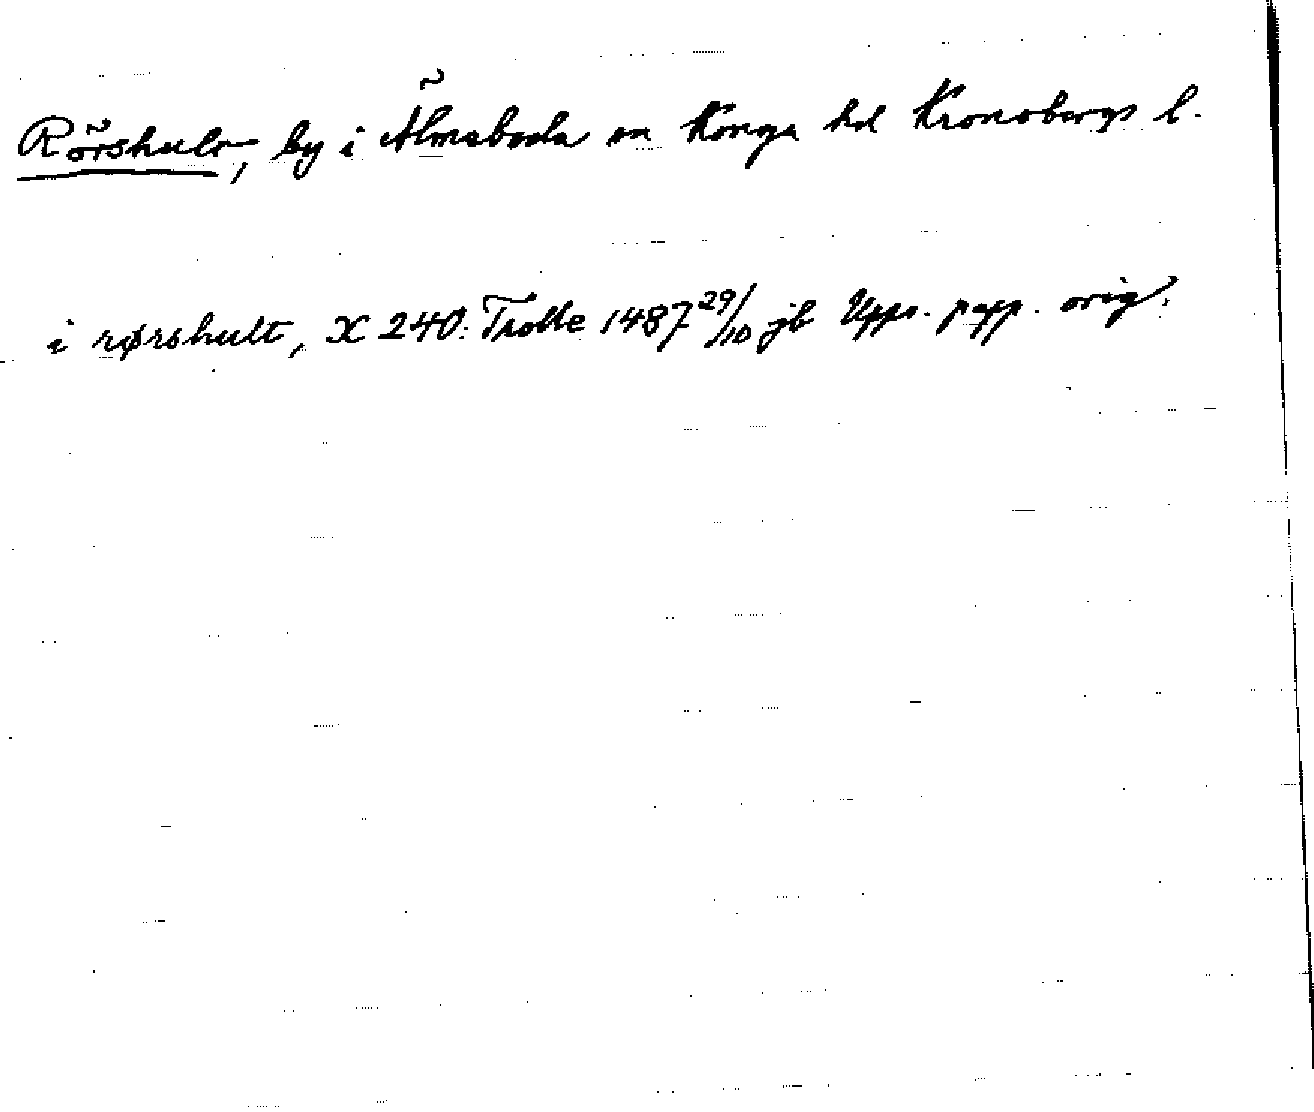 Rörshult, by i Älmeboda sn Konga hd Kronobergs l.
i rørshult, X 240: Trolle 1487 29/10 jb Upps. papp. orig.